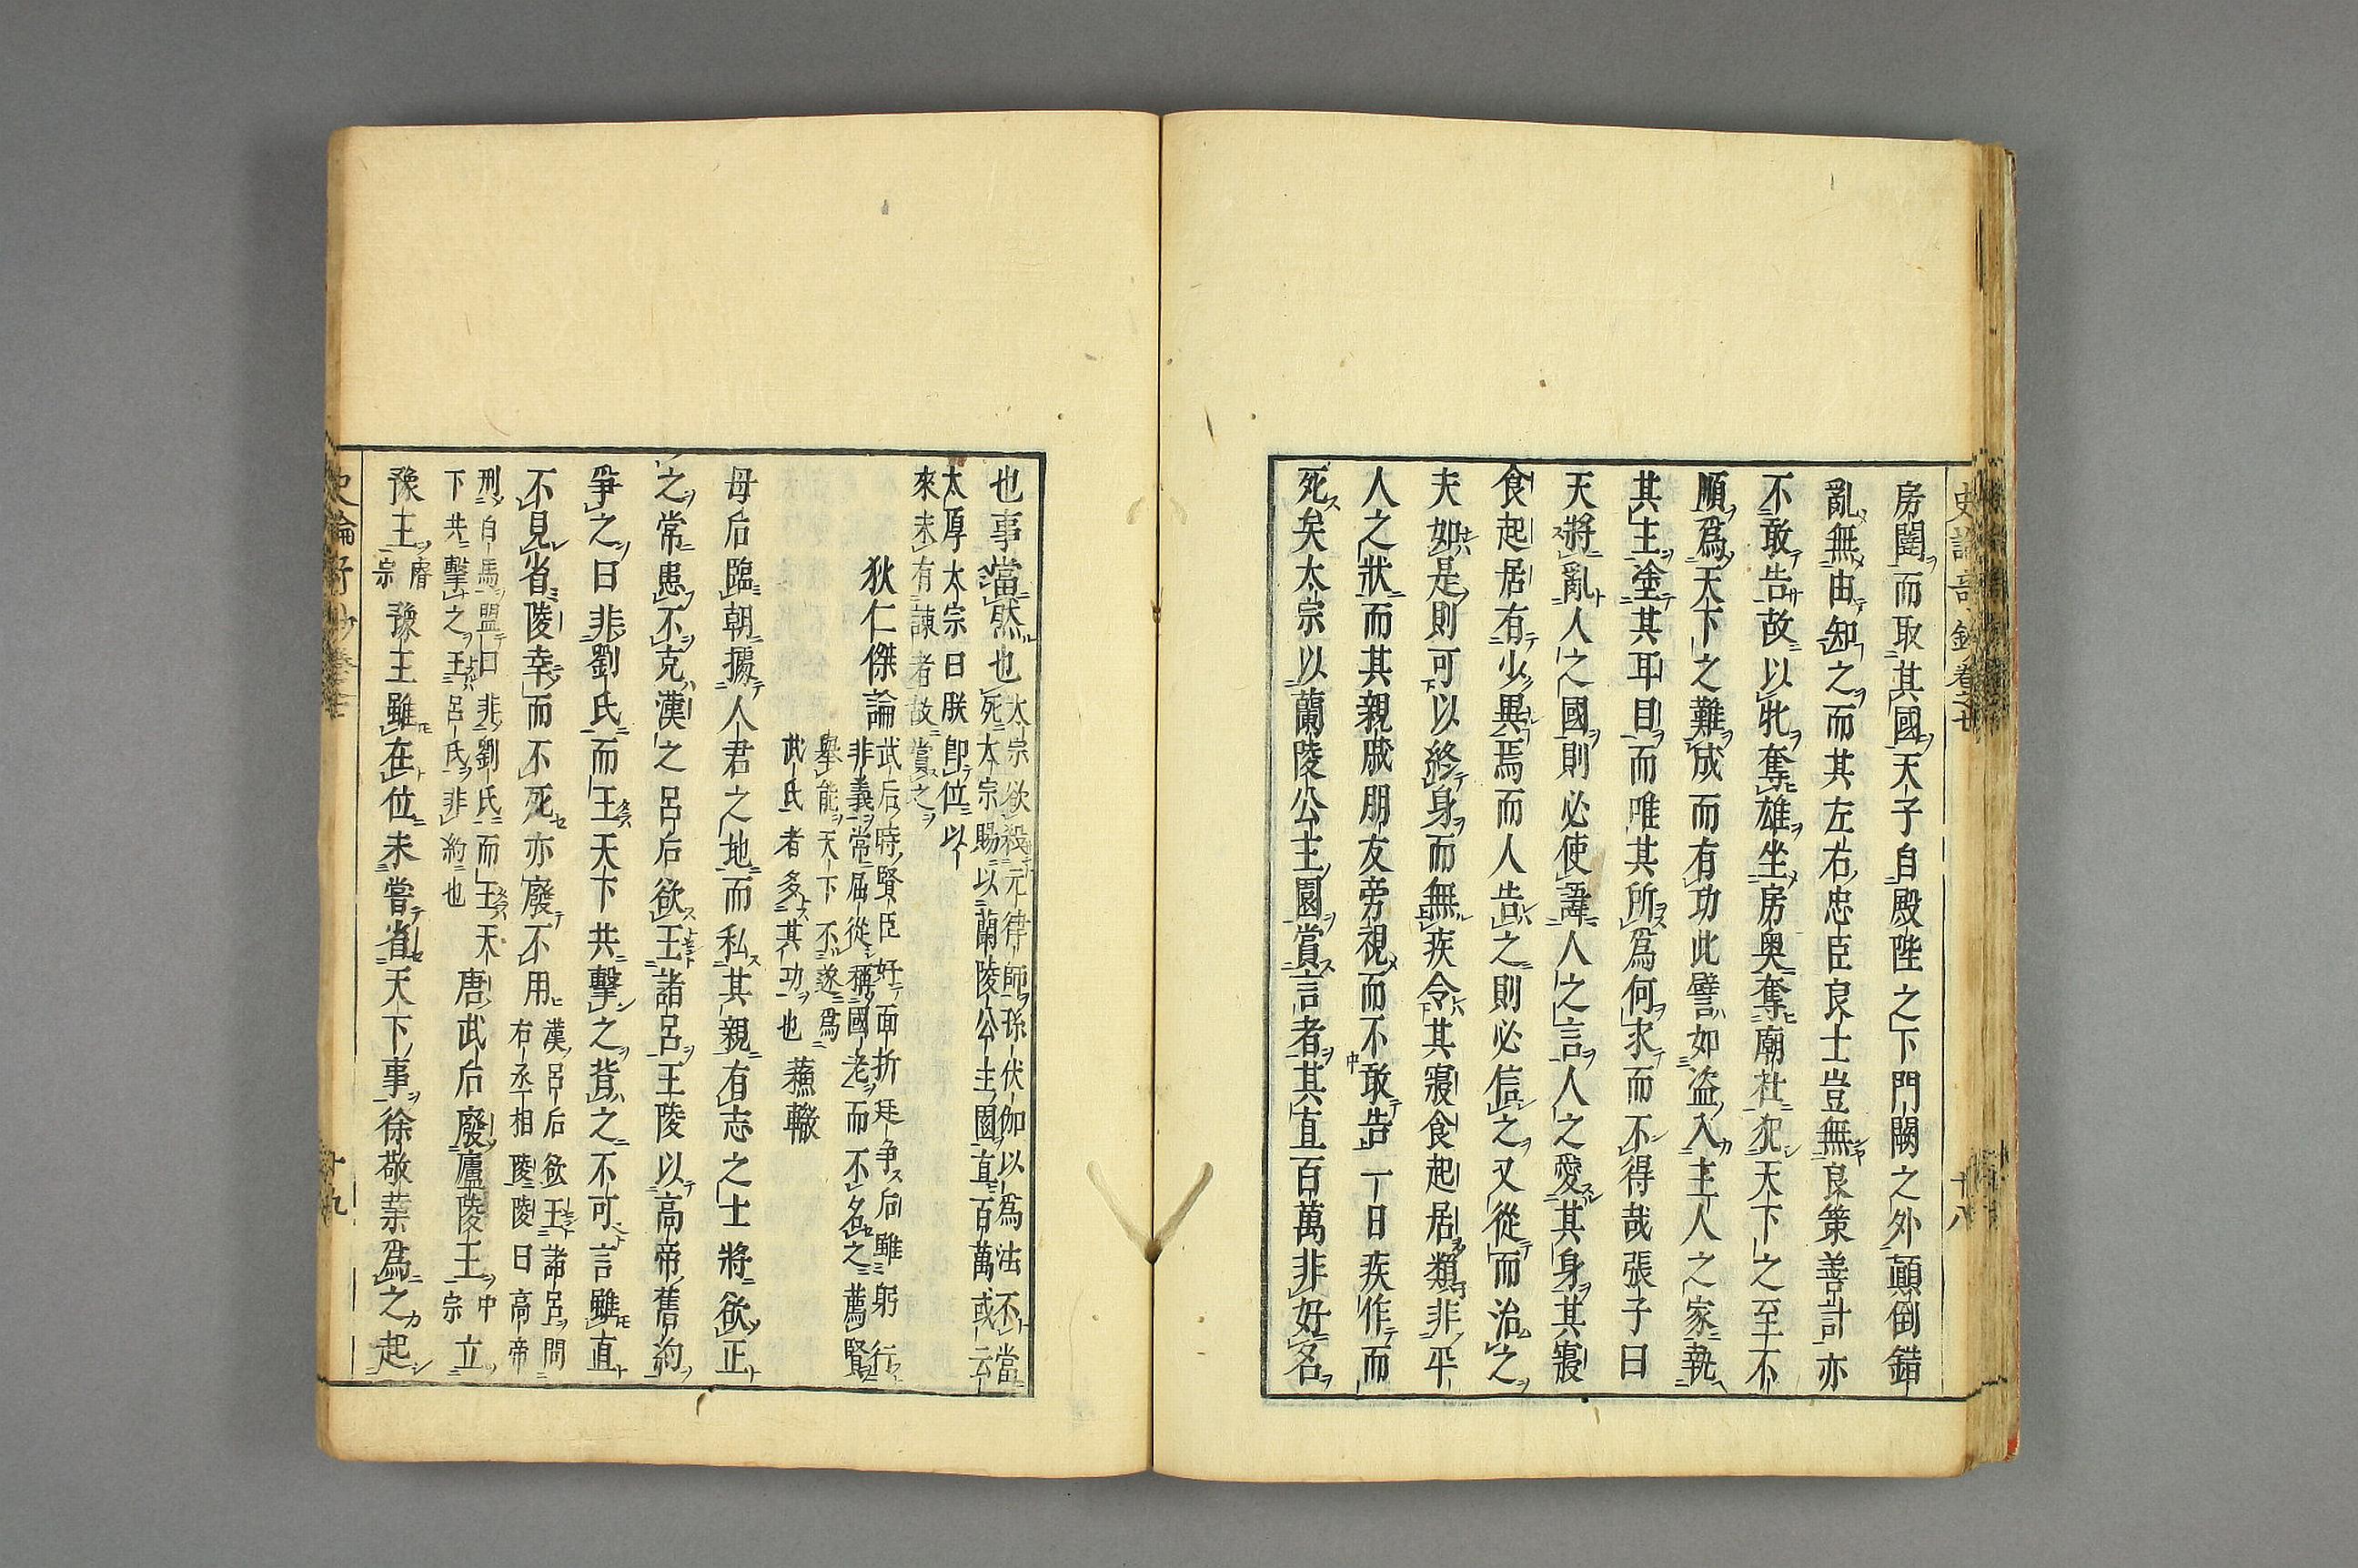 房闥而取其國天子自殿陛之下門闕之外顛倒錯
亂無由知之而其左右忠臣良士豈無良策善計亦
不敢告故以牝奪雄坐房奥奪廟社犯天下之至不
順爲天下之難成而有功此譬如盗入主人之家執
其主塗其耳目而唯其所爲何求而不得哉張子曰
天將亂人之國則必使諱人之言人之愛其身其寢
食起居有少異焉而人告之則必信之又從而治之
夫如是則可以終身而無疾令其寢食起居類非平
人之狀而其親戚朋友旁視而不敢告一日疾作而
死矣太宗以蘭陵公主園賞言者其直百萬非好名
也事當然也太宗欲殺元律師孫伏伽以爲法不當
死太宗賜以蘭陵公主園直百萬或云
太厚太宗曰朕即位以
來未有諌者故賞之
狄仁傑論武后時賢臣好面折廷争后雖躬行
非義常屈從稱國老而不名之薦賢
擧能天下不遂爲
武氏者多其功也 蘓轍
母后臨朝據人君之地而私其親有志之士將欲正
之常患不克漢之呂后欲王諸呂王陵以高帝舊約
爭之曰非劉氏而王天下共擊之背之不可言雖直
不見省陵幸而不死亦廢不用漢呂后欲王諸呂問
右丞相陵陵曰高帝
刑白馬盟曰非劉氏而王天
下共擊之王呂氏非約也
唐武后廢廬陵王中宗立
豫王睿宗豫王雖在位未嘗省天下事徐敬業爲之起
十八
十九